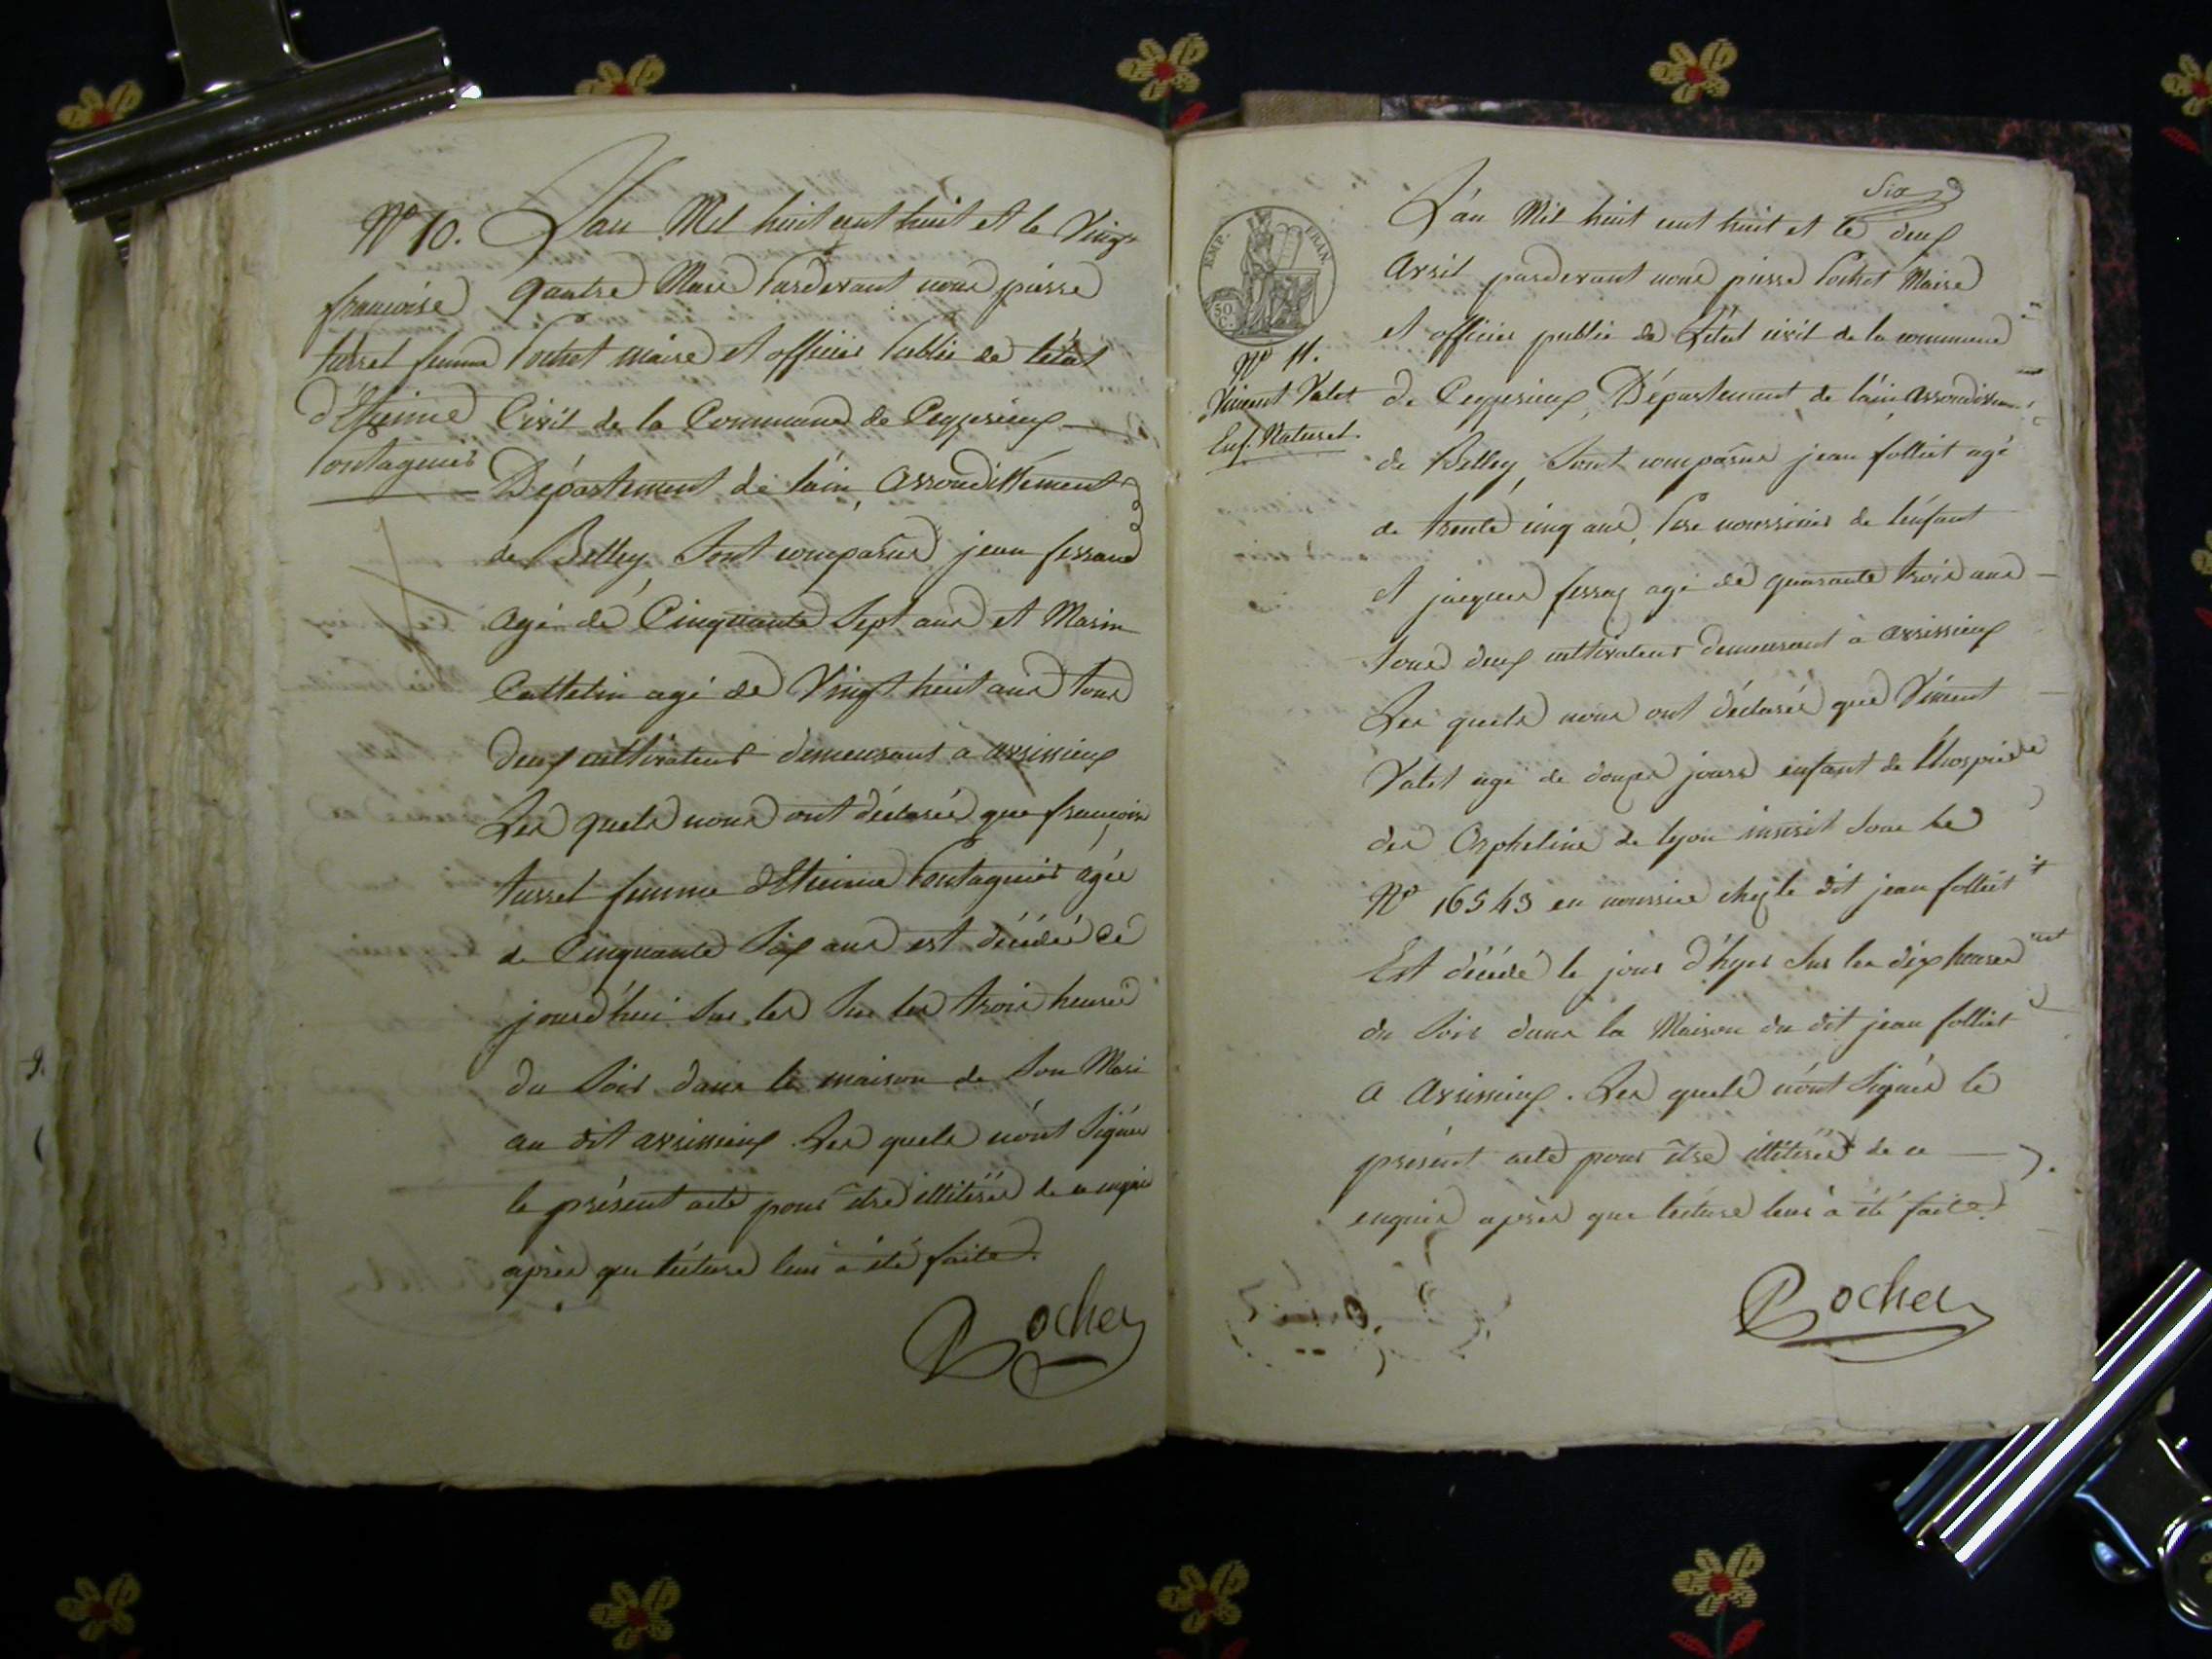 Nº 10.
françoise
turrel femme
d'Etienne
Pontagnier
L'an Mil huit cent huit et le Vingt
quatre Mars Pardevant nous pierre
Pochet maire et officier Public de l'état
Civil de la Commune de Ceyzerieux
Département de l'ain, arrondissement
de Belley, Sont comparus jean ferrand
agé de Cinquante Sept ans et Marin
Cattelin agé de Vingt huit ans tous
deux cultivateurs demeurant à avrissieux
Les quels nous ont déclarés que françoise
turrel femme d'Etienne Pontagnier agée
de Cinquante Six ans est décédée Ce
jourd'hui Sur les Sur les trois heures
du Soir dans la maison de Son Mari
au dit avrissieux. Les quels n'ont Signés
le présent acte pour être illitérés de ce enquis
après que lécture leur à été faite.
Pochet
Six
EMP. FRAN.
50 C.
Nº 11.
Vincent Valet
Enf. Naturel.
L'an Mil huit cent huit et le deux
Avril pardevant nous pierre Pochet Maire
et officier public de L'état civil de la commune
de Ceyzerieux, Département de l'ain, arrondissement
de Belley, Sont comparus jean folliet agé
de trente cinq ans, Pere nourricier de l'enfant
et jacques ferraz agé de quarante trois ans
tous deux cultivateurs demeurant à avrissieux
Les quels nous ont déclarés que Vincent
Valet agé de douze jours enfant de l'hospice
des Orphelins de lyon inscrit Sous le
Nº 16543 en nourrice chez le dit jean folliet
Est décédé le jour d'hyer Sur les dix heures
du Soir dans la Maison du dit jean folliet
a Avrissieux. Les quels n'ont Signés le
présent acte pour être illitérés de ce
enquis après que lecture leur à été faite.
Pochet